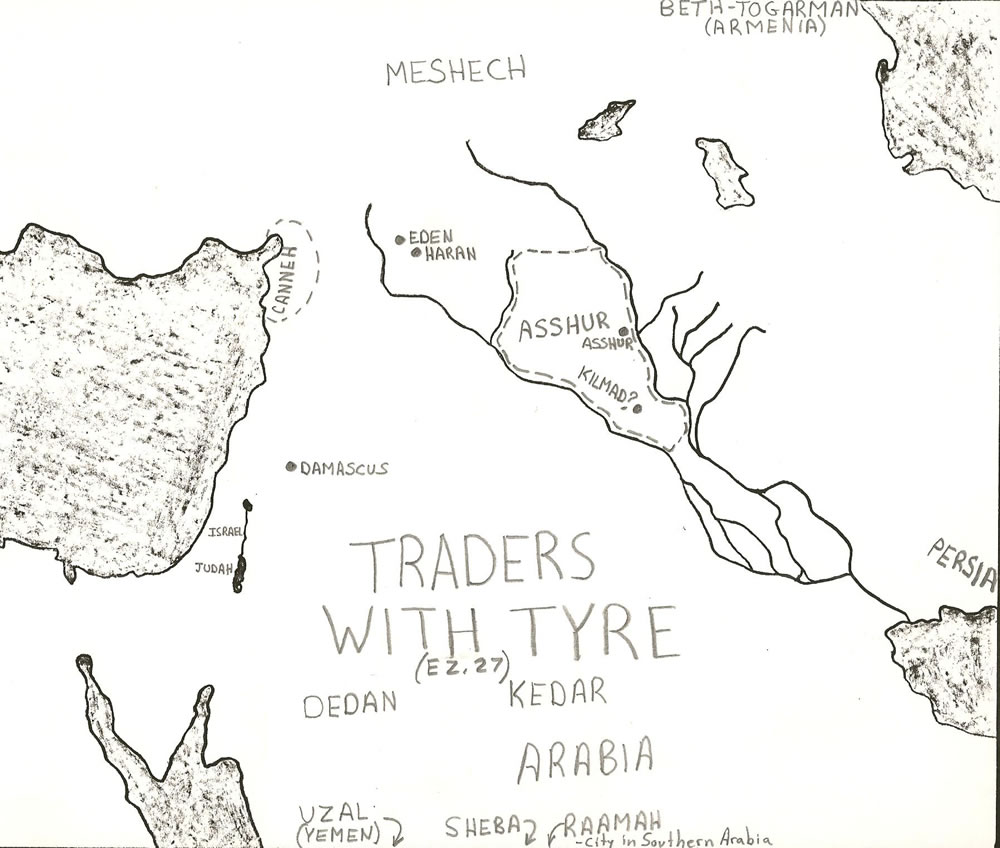 BETH-TOGARMAN
(ARMENIA)
MESHECH
EDEN
HARAN
CANNEH
ASSHUR
ASSHUR
KILMAD?
DAMASCUS
ISRAEL
JUDAH
TRADERS
WITH TYRE
(EZ. 27)
PERSIA
DEDAN
KEDAR
ARABIA
UZAL
(YEMEN)
SHEBA
RAAMAH
-City in Southern Arabia